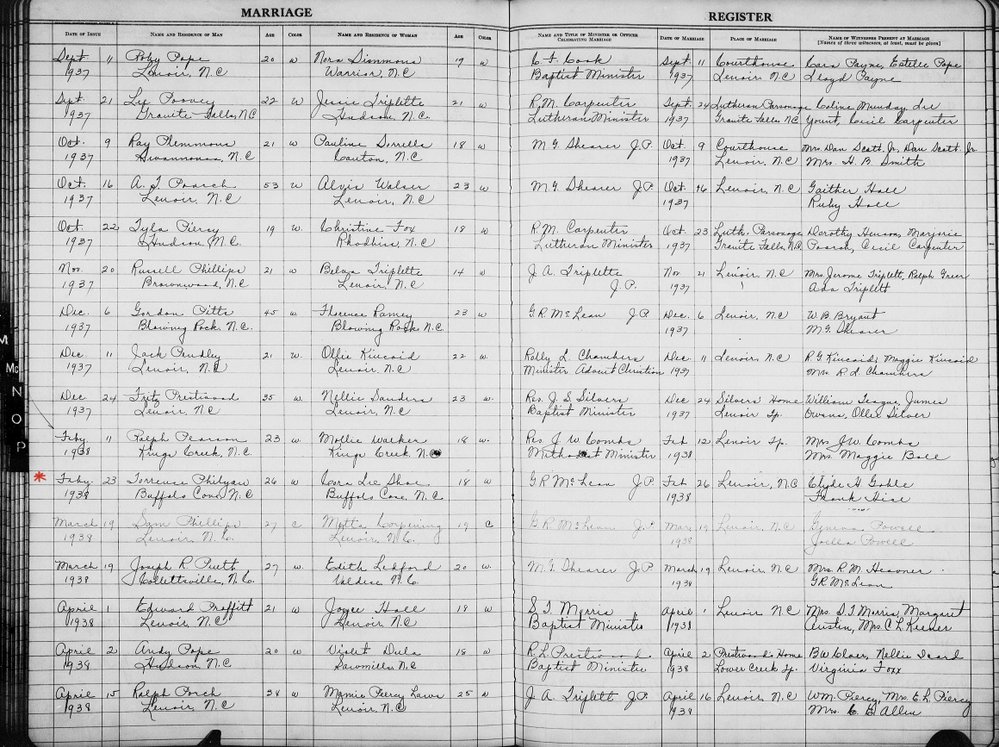 MARRIAGE REGISTER
DATE OF ISSUE NAME AND RESIDENCE OF MAN AGE COLOR NAME AND RESIDENCE OF WOMAN AGE COLOR NAME AND TITLE OF MINISTER OR OFFICER CELEBRATING MARRIAGE DATE OF MARRIAGE PLACE OF MARRIAGE NAME OF WITNESSES PRESENT AT MARRIAGE
[Names of three witnesses, at least, must be given]
Sept 11 Roby Pope 20 w Nora Simmons 19 w C. F. Cook Sept 11 Courthouse Cara Payne, Estelle Pope
1937 Lenoir, N.C. Warrior, N.C. Baptist Minister 1937 Lenoir N.C. Lloyd Payne
Sept. 21 Lee Poovey 22 W Jessie Triplette 21 w R.M. Carpenter Sept. 24 Lutheran Parsonage Celine Munday, Lee
1937 Granite Falls, N.C. Hudson, N.C. Lutheran Minister 1937 Granite Falls N.C. Yount, Cecil Carpenter
Oct. 9 Ray Plemmons 21 w Pauline Sorrells 18 w M G Shearer J.P. Oct. 9 Courthouse Mrs. Dan Scott, Jr, Dan Scott, Jr
1937 Swannanoa, N.C. Canton, N.C. 1937 Lenoir, N.C. Mrs. H. B. Smith
Oct. 16 A. J. Poarch 53 W 23 w M G Shearer J.P. Oct 16 Lenoir, N.C Gaither Hall
1937 Lenoir, N.C Lenoir, N.C. 1937 Ruby Hall
Oct 22 Piercy 19 w Christine Fox 18 w R.M. Carpenter Oct 23 Luth. Parsonage Dorothy Henson, Marjorie
1937 Hudson, N.C. Rhodhiss, N.C Lutheran Minister 1937 Granite Falls, N.C. Poarch, Cecil Carpenter
Nov. 20 Russell Phillips 21 w Triplette 14 w J. A. Triplette Nov 21 Lenoir N.C Mrs. Jerome Triplett, Ralph Greer
1937 Brownwood, N.C Lenoir, N.C J.P. 1937 Ada Triplett
Dec. 6 Gordon Pitts 45 w Florence Ramey 23 w G R McLean J.P. Dec. 6 Lenoir, N.C W B Bryant
1937 Blowing Rock, N.C. Blowing Rock N.C 1937 M G Shearer
Dec 11 Jack Pendley 21 w. Ollie Kincaid 22 w. Rolly L. Chambers Dec 11 Lenoir, N.C R G Kincaid, Maggie Kincaid
1937 Lenoir, N.C Lenoir N.C Minister Advent Christian 1937 Mrs. R. L. Chambers
Dec 24 Fritz Prestwood 35 w Nellie Sanders 23 w. Rev. J. S. Silvers Dec 24 Silvers Home William Teague, James
1937 Lenoir, N.C Lenoir, N.C Baptist Minister 1937 Lenoir Tp. Owens, Ollie Silver
Feby. 11 Ralph Pearson 23 w Mollie Walker 18 w. Rev J W Combs Feb 12 Lenoir Tp. Mrs J.W. Combs
1938 Kings Creek, N.C. Kings Creek, N.C Methodist Minister 1938 Mrs Maggie Ball
* Feby. 23 Torrence Philyaw 26 w Cora Lee Shoe 18 w G R McLean J.P. Feb 26 Lenoir, N.C Clyde H Goble
1938 Buffalo Cove, N.C Buffalo Cove, N.C. 1938 Frank Hise
March 19 Sam Phillips 27 c Corpening 19 c G R McLean J.P. Mar 19 Lenoir, N.C Geneva Powell
1938 Lenoir, N.C. Lenoir N.C. 1938 Powell
March 19 Joseph R Pruett 27 w. Edith Ledford 20 w. M. G Shearer J.P. March 19 Lenoir, N.C Mrs R.M. Heavner
1938 Collettsville, N.C. Valdese N.C. 1938 G R McLean
April 1 Edward Proffitt 21 w Joyce Hall 18 w S. T Morris April 1 Lenoir N.C Mrs. S T Morris, Margaret
1938 Lenoir N.C Lenoir N.C Baptist Minister 1938 Austin, Mrs C L Keener
April 2 Andy Pope 20 w Violet Dula 18 w R. L. Prestwood April 2 Prestwood Home B W Claer, Nellie Icard
1938 Hudson N.C Sawmills N.C Baptist Minister 1938 Lower Creek Tp. Virginia Foxx
April 15 Ralph Porch 38 w Mamie Piercy Laws 25 w J. A. Triplett J.P. April 16 Lenoir, N.C W.M. Piercy, Mrs. E L Piercy
1938 Lenoir, N.C Lenoir, N.C 1938 Mrs. C. E. Allen
M
Mc
N
O
P